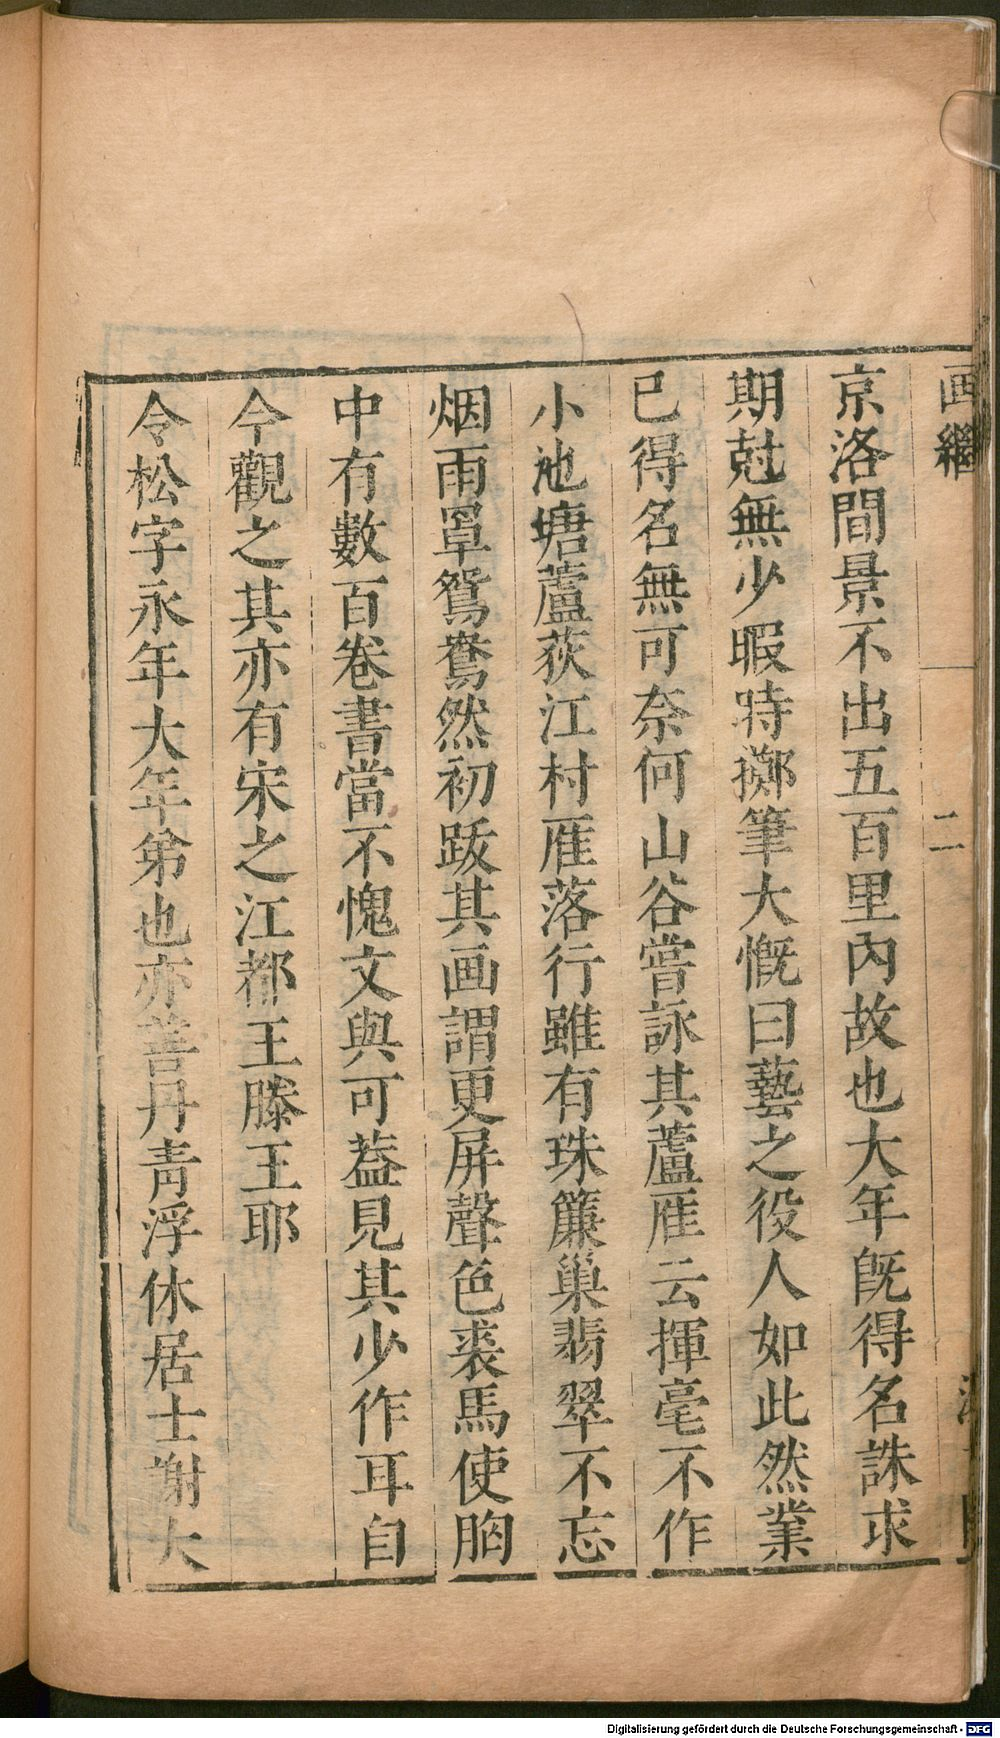 画繼
二
京洛間景不出五百里內故也大年旣得名誅求
期尅無少暇時擲筆大慨曰藝之役人如此然業
已得名無可奈何山谷嘗詠其蘆雁云揮毫不作
小池塘蘆荻江村雁落行雖有珠簾巢翡翠不忘
烟雨罩鴛鴦然初跋其画謂更屏聲色裘馬使胸
中有數百卷書當不愧文與可葢見其少作耳自
今觀之其亦有宋之江都王滕王耶
令松字永年大年弟也亦善丹靑浮休居士謝大
Digitalisierung gefördert durch die Deutsche Forschungsgemeinschaft - DFG